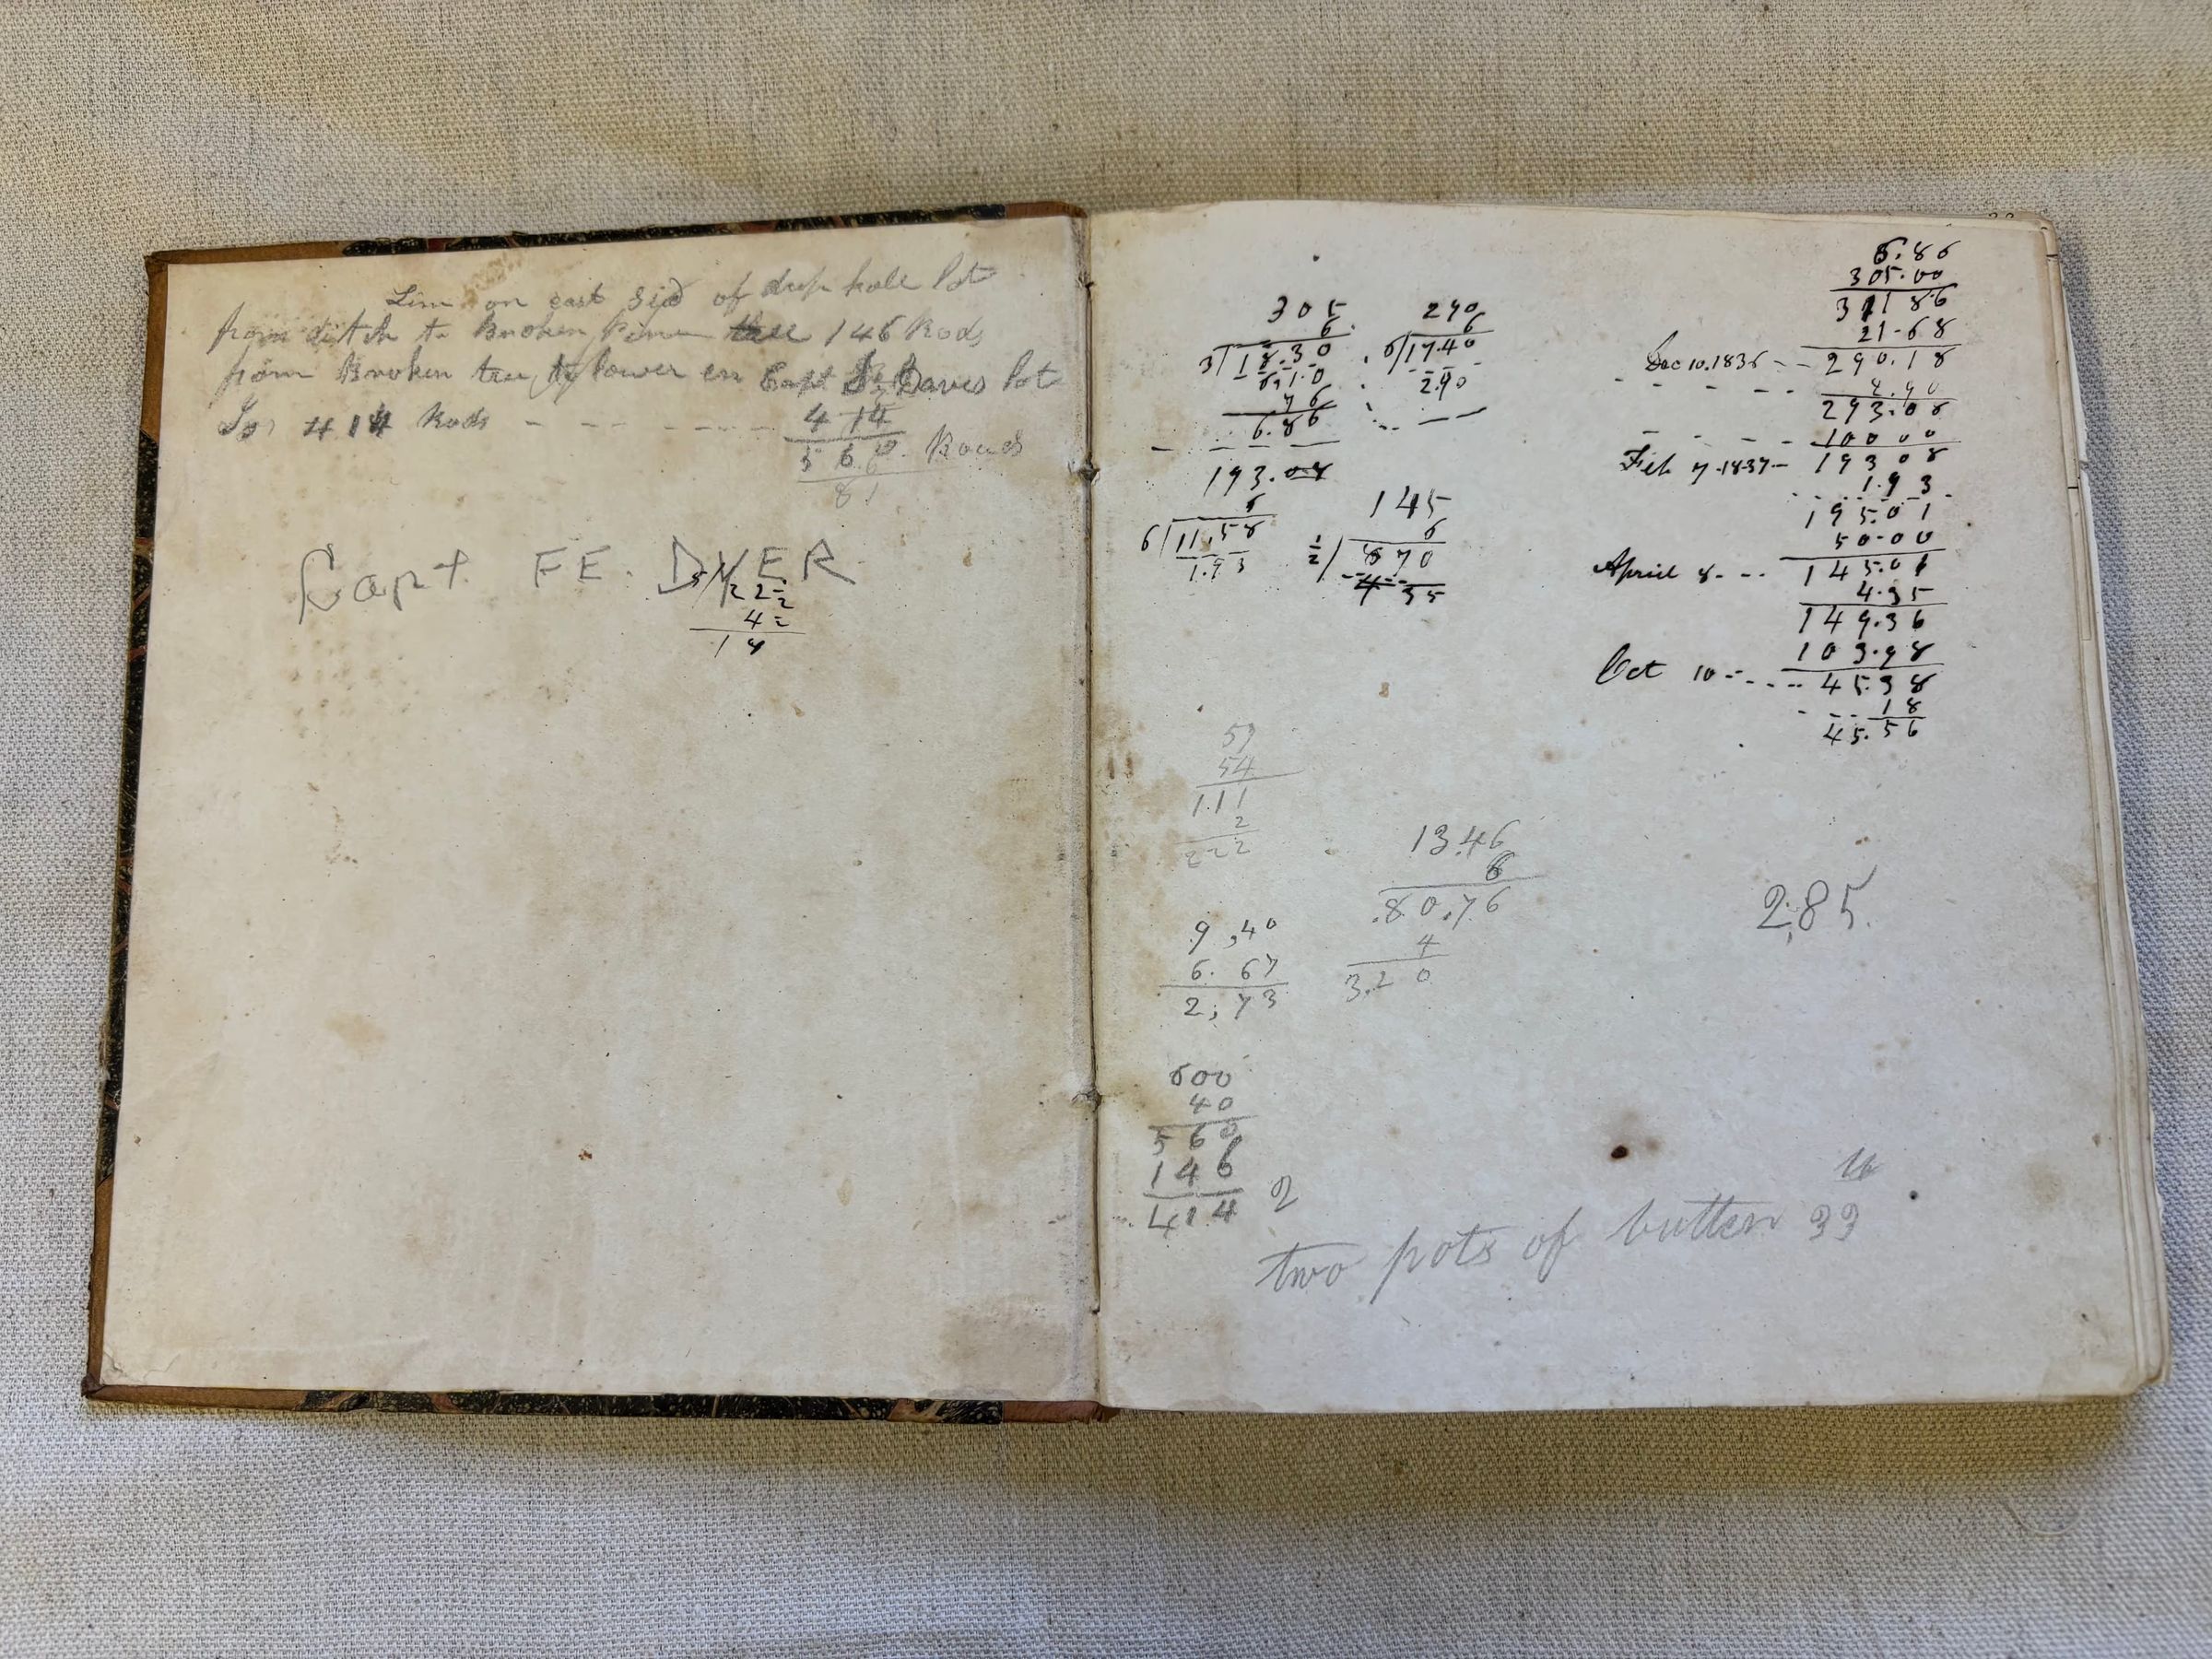 Line on east sid of deep hole lot
from ditch to Broken Pine tree 146 Rods
from Broken tree to lower en Capt Davis lot
So 414 Rods - - - - - - 414
560 Roads
81
Capt FE. DYER
22=
4=
18
305
6.
3/18.30
6,1.0
76
6.86
290
6
6/1740
290
193.08
6
6/11,58
1.93
145
6
1/2/870
4 35
6.86
305.00
311 86
21.68
Dec 10.1836 -- 290.18
2.90
293.08
100 00
Feb 7.1837- 193 08
1.93
195.01
50.00
April 8. -- 145.01
4.35
149.36
103.98
Oct 10 - - - - 45.38
18
45.56
57
54
111
2
222
13.46
6
80.76
4
3.20
9,40
6.67
2,73
2,85.
600
40
560
146
414 2
two pots of butter 33